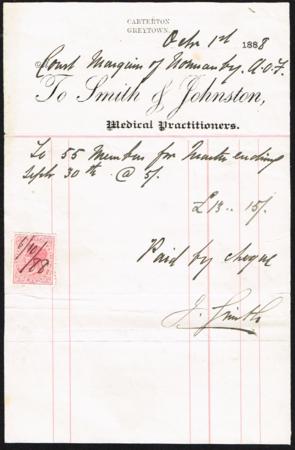 CARTERTON
GREYTOWN
Octr 1st 1888
Court Marquis of Normanby, A.O.F.
To Smith & Johnston,
Medical Practitioners.
To 55 Members for Quarter ending
Sept 30th @ 5/.
£13 .. 15/.
Paid by cheque
J. Smith
6/10/88